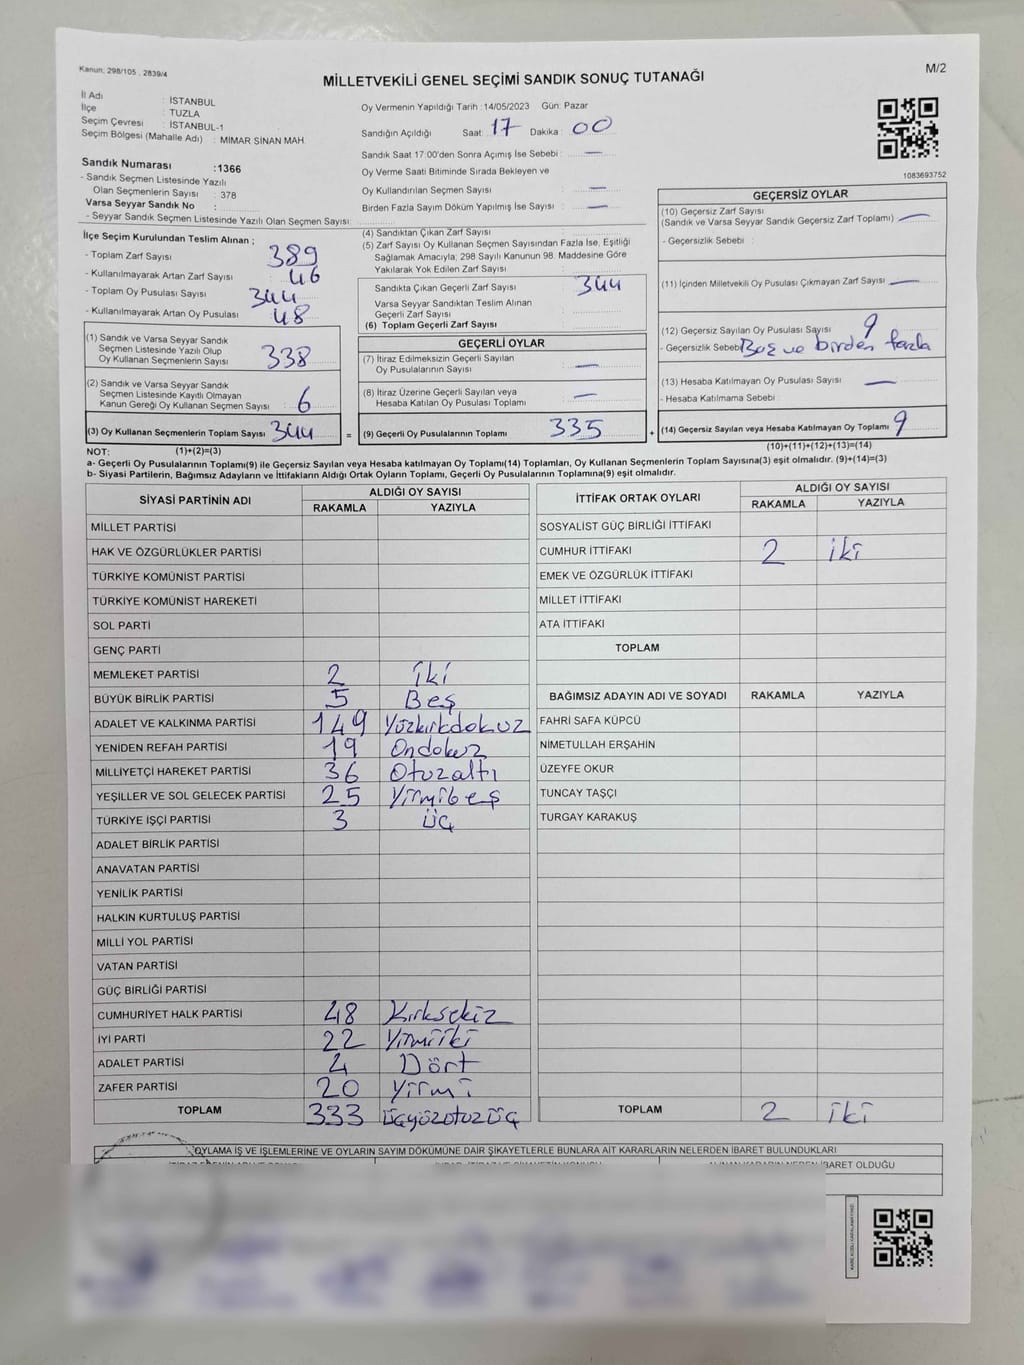 Kanun: 298/105 , 2839/4
M/2
MİLLETVEKİLİ GENEL SEÇİMİ SANDIK SONUÇ TUTANAĞI
İl Adı : İSTANBUL
İlçe : TUZLA
Seçim Çevresi : İSTANBUL-1
Seçim Bölgesi (Mahalle Adı) : MİMAR SİNAN MAH.
Oy Vermenin Yapıldığı Tarih :14/05/2023 Gün: Pazar
Sandığın Açıldığı Saat: 17 Dakika : 00
Sandık Saat 17:00'den Sonra Açımış İse Sebebi : —
Oy Verme Saati Bitiminde Sırada Bekleyen ve
Oy Kullandırılan Seçmen Sayısı : —
Birden Fazla Sayım Döküm Yapılmış İse Sayısı : —
1083693752
Sandık Numarası :1366
- Sandık Seçmen Listesinde Yazılı
Olan Seçmenlerin Sayısı : 378
Varsa Seyyar Sandık No :
- Seyyar Sandık Seçmen Listesinde Yazılı Olan Seçmen Sayısı:
İlçe Seçim Kurulundan Teslim Alınan ;
- Toplam Zarf Sayısı : 389
- Kullanılmayarak Artan Zarf Sayısı : 46
- Toplam Oy Pusulası Sayısı : 344
- Kullanılmayarak Artan Oy Pusulası : 48
(1) Sandık ve Varsa Seyyar Sandık
Seçmen Listesinde Yazılı Olup
Oy Kullanan Seçmenlerin Sayısı : 338
(2) Sandık ve Varsa Seyyar Sandık
Seçmen Listesinde Kayıtlı Olmayan
Kanun Gereği Oy Kullanan Seçmen Sayısı : 6
(3) Oy Kullanan Seçmenlerin Toplam Sayısı : 344
(4) Sandıktan Çıkan Zarf Sayısı :
(5) Zarf Sayısı Oy Kullanan Seçmen Sayısından Fazla İse, Eşitliği
Sağlamak Amacıyla; 298 Sayılı Kanunun 98. Maddesine Göre
Yakılarak Yok Edilen Zarf Sayısı :
Sandıkta Çıkan Geçerli Zarf Sayısı : 344
Varsa Seyyar Sandıktan Teslim Alınan
Geçerli Zarf Sayısı :
(6) Toplam Geçerli Zarf Sayısı :
GEÇERLİ OYLAR
(7) İtiraz Edilmeksizin Geçerli Sayılan
Oy Pusulalarının Sayısı : —
(8) İtiraz Üzerine Geçerli Sayılan veya
Hesaba Katılan Oy Pusulası Toplamı : —
= (9) Geçerli Oy Pusulalarının Toplamı : 335
GEÇERSİZ OYLAR
(10) Geçersiz Zarf Sayısı
(Sandık ve Varsa Seyyar Sandık Geçersiz Zarf Toplamı) : —
- Geçersizlik Sebebi :
(11) İçinden Milletvekili Oy Pusulası Çıkmayan Zarf Sayısı : —
(12) Geçersiz Sayılan Oy Pusulası Sayısı : 9
- Geçersizlik Sebebi: Boş ve birden fazla
(13) Hesaba Katılmayan Oy Pusulası Sayısı : —
- Hesaba Katılmama Sebebi :
+ (14) Geçersiz Sayılan veya Hesaba Katılmayan Oy Toplamı : 9
NOT: (1)+(2)=(3) (10)+(11)+(12)+(13)=(14)
a- Geçerli Oy Pusulalarının Toplamı(9) ile Geçersiz Sayılan veya Hesaba katılmayan Oy Toplamı(14) Toplamları, Oy Kullanan Seçmenlerin Toplam Sayısına(3) eşit olmalıdır. (9)+(14)=(3)
b- Siyasi Partilerin, Bağımsız Adayların ve İttifakların Aldığı Ortak Oyların Toplamı, Geçerli Oy Pusulalarının Toplamına(9) eşit olmalıdır.
SİYASİ PARTİNİN ADI ALDIĞI OY SAYISI
RAKAMLA YAZIYLA
MİLLET PARTİSİ
HAK VE ÖZGÜRLÜKLER PARTİSİ
TÜRKİYE KOMÜNİST PARTİSİ
TÜRKİYE KOMÜNİST HAREKETİ
SOL PARTİ
GENÇ PARTİ
MEMLEKET PARTİSİ 2 iki
BÜYÜK BİRLİK PARTİSİ 5 Beş
ADALET VE KALKINMA PARTİSİ 149 Yüzkırkdokuz
YENİDEN REFAH PARTİSİ 19 Ondokuz
MİLLİYETÇİ HAREKET PARTİSİ 36 Otuzaltı
YEŞİLLER VE SOL GELECEK PARTİSİ 25 Yirmibeş
TÜRKİYE İŞÇİ PARTİSİ 3 üç
ADALET BİRLİK PARTİSİ
ANAVATAN PARTİSİ
YENİLİK PARTİSİ
HALKIN KURTULUŞ PARTİSİ
MİLLİ YOL PARTİSİ
VATAN PARTİSİ
GÜÇ BİRLİĞİ PARTİSİ
CUMHURİYET HALK PARTİSİ 48 Kırksekiz
İYİ PARTİ 22 Yirmiiki
ADALET PARTİSİ 4 Dört
ZAFER PARTİSİ 20 Yirmi
TOPLAM 333 üçyüzotuzüç
İTTİFAK ORTAK OYLARI ALDIĞI OY SAYISI
RAKAMLA YAZIYLA
SOSYALİST GÜÇ BİRLİĞİ İTTİFAKI
CUMHUR İTTİFAKI 2 iki
EMEK VE ÖZGÜRLÜK İTTİFAKI
MİLLET İTTİFAKI
ATA İTTİFAKI
TOPLAM
BAĞIMSIZ ADAYIN ADI VE SOYADI RAKAMLA YAZIYLA
FAHRİ SAFA KÜPCÜ
NİMETULLAH ERŞAHİN
ÜZEYFE OKUR
TUNCAY TAŞÇI
TURGAY KARAKUŞ
TOPLAM 2 iki
OYLAMA İŞ VE İŞLEMLERİNE VE OYLARIN SAYIM DÖKÜMÜNE DAİR ŞİKAYETLERLE BUNLARA AİT KARARLARIN NELERDEN İBARET BULUNDUKLARI
İBARET OLDUĞU